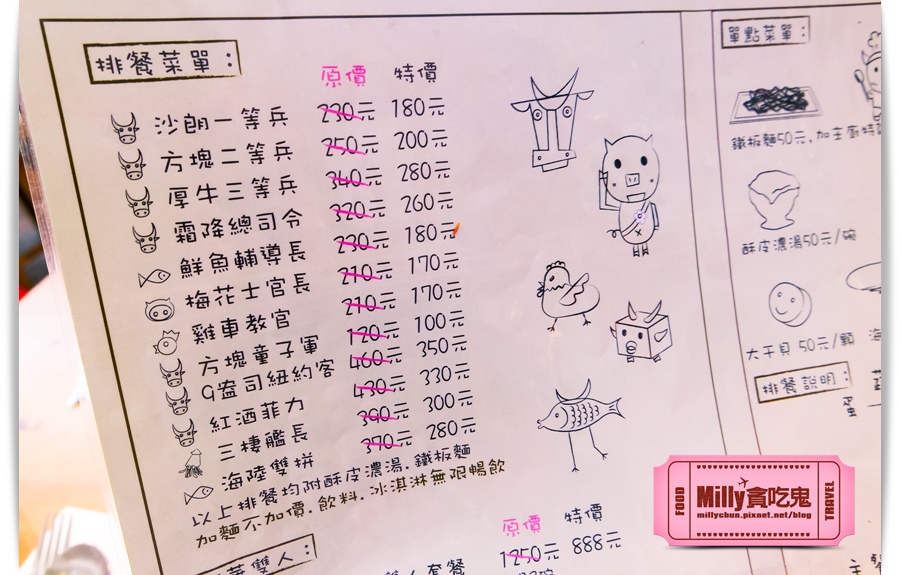 排餐菜單:
原價 特價
沙朗一等兵 230元 180元
方塊二等兵 250元 200元
厚牛三等兵 340元 280元
霜降總司令 320元 260元
鮮魚輔導長 230元 180元
梅花士官長 210元 170元
雞車教官 210元 170元
方塊童子軍 120元 100元
9盎司紐約客 460元 350元
紅酒菲力 430元 330元
三棲艦長 390元 300元
海陸雙拼 370元 280元
以上排餐均附酥皮濃湯.鐵板麵
加麵不加價.飲料.冰淇淋無限暢飲
雙人:
原價 特價
人套餐 1250元 888元
單點菜單:
鐵板麵50元,加主廚特
酥皮濃湯50元/碗
大干貝 50元/顆 海
排餐說明:
蛋
FOOD
Milly貪吃鬼
millychun.pixnet.net/blog
TRAVEL